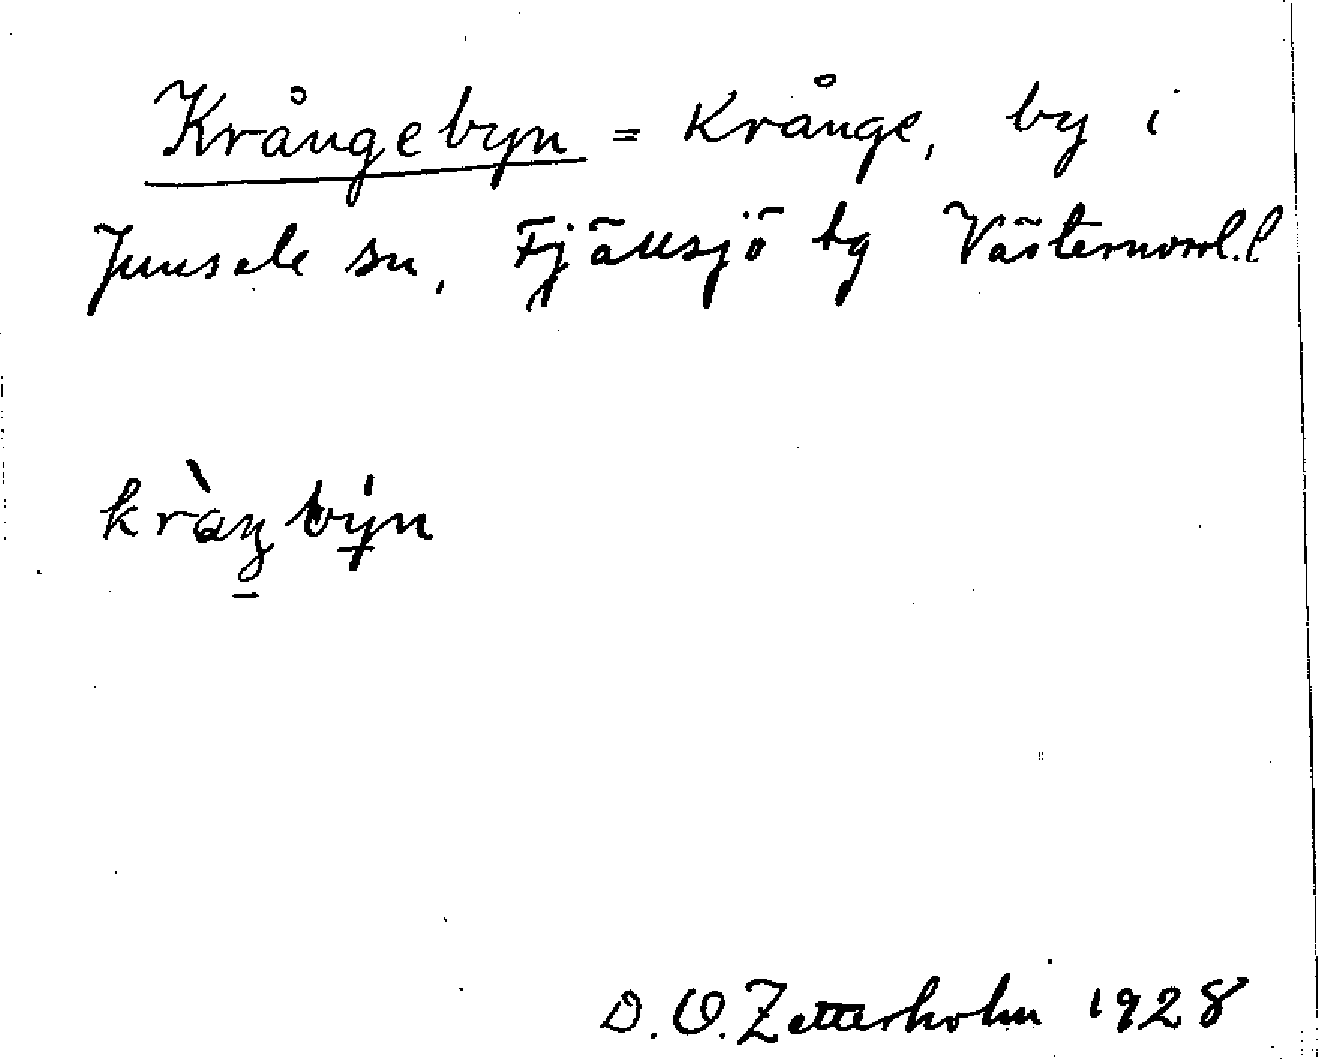 Krångebyn = Krånge, by i
Junsele sn, Fjällsjö tg Västernorrl. l
kràŋbýn
D. O. Zetterholm 1928